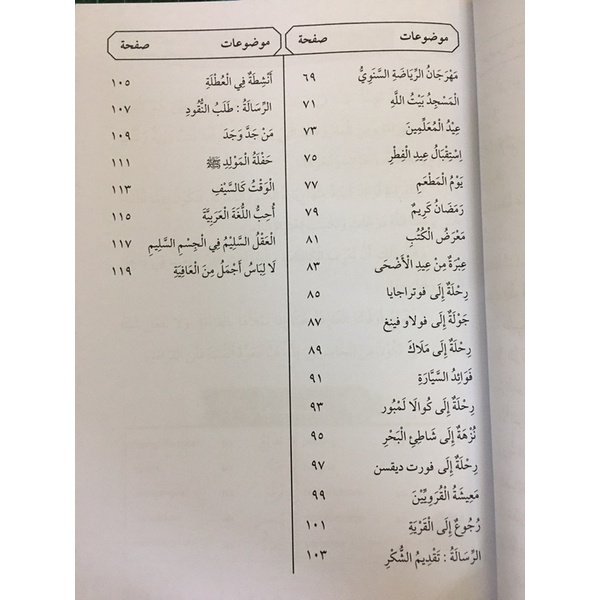 موضوعات صفحة
مَهْرَجَانُ الرِّيَاضَةِ السَّنَوِيُّ ٦٩
الْمَسْجِدُ بَيْتُ اللَّهِ ٧١
عِيْدُ الْمُعَلِّمِينَ ٧٣
اِسْتِقْبَالُ عِيدِ الْفِطْرِ ٧٥
يَوْمُ الْمَطْعَمِ ٧٧
رَمَضَانُ كَرِيمٌ ٧٩
مَعْرَضُ الْكُتُبِ ٨١
عِبْرَةٌ مِنْ عِيدِ الْأَضْحَى ٨٣
رِحْلَةٌ إِلَى فوتراجايا ٨٥
جَوْلَةٌ إِلَى فولاو فينغ ٨٧
رِحْلَةٌ إِلَى مَلَاكَ ٨٩
فَوَائِدُ السَّيَّارَةِ ٩١
رِحْلَةٌ إِلَى كوالا لَمْبُور ٩٣
نُزْهَةٌ إِلَى شَاطِئِ الْبَحْرِ ٩٥
رِحْلَةٌ إِلَى فورت ديقسن ٩٧
مَعِيشَةُ الْقَرَوِيِّيْنَ ٩٩
رُجُوعٌ إِلَى الْقَرْيَةِ ١٠١
الرِّسَالَةُ : تَقْدِيمُ الشُّكْرِ ١٠٣
موضوعات صفحة
أَنْشِطَةٌ فِي الْعُطْلَةِ ١٠٥
الرِّسَالَةُ : طَلَبُ النُّقُودِ ١٠٧
مَنْ جَدَّ وَجَدَ ١٠٩
حَفْلَةُ الْمَوْلِدِ ﷺ ١١١
الْوَقْتُ كَالسَّيْفِ ١١٣
أُحِبُّ اللُّغَةَ الْعَرَبِيَّةَ ١١٥
الْعَقْلُ السَّلِيمُ فِي الْجِسْمِ السَّلِيمِ ١١٧
لَا لِبَاسُ أَجْمَلُ مِنَ الْعَافِيَةِ ١١٩